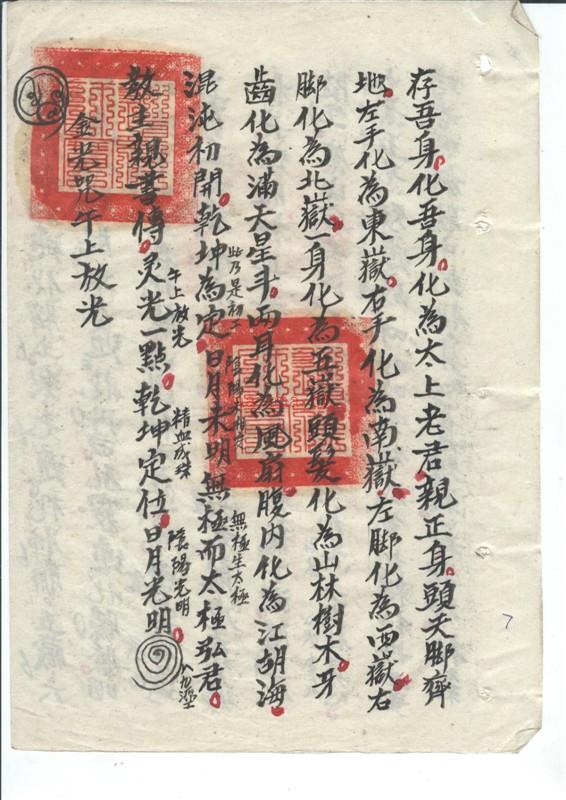 存吾身化吾身化為太上老君親正身頭天脚齊
地左手化為東嶽右手化為南嶽左脚化為西嶽右
脚化為北嶽一身化為五嶽頭髮化為山林樹木牙
齒化為滿天星斗両耳化為風扇腹内化為江胡海
此乃是初
混沌初開乾坤為定日月未明無極而太極弘君
無極生太極
午上放光
精血成珠
陰陽光明
教主親書傳灵光一點乾坤定位日月光明
金光咒午上放光
7